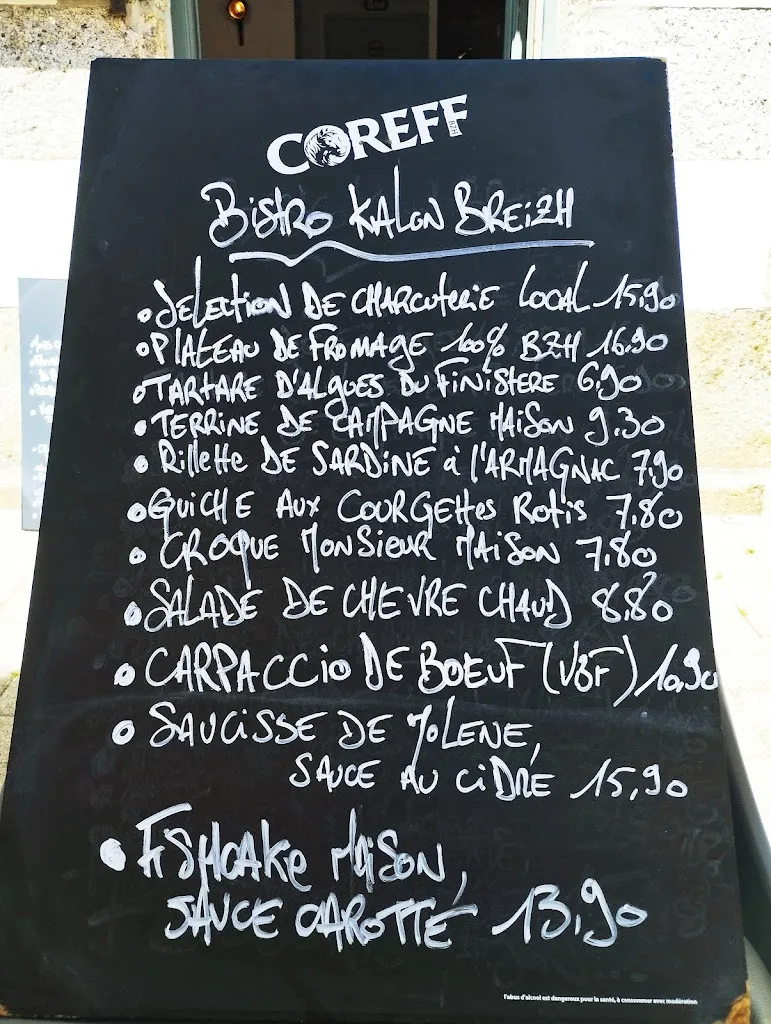 COREFF
BZH
BiSTRO KALON BREiZH
• SELECTiON DE CHARCUTERiE LOCAL 15,90
• PLATEAU DE FROMAGE 100% BZH 16.90
• TARTARE D'ALGUES DU FiNiSTERE 6,90
• TERRiNE DE CAMPAGNE MAiSON 9.30
• RilleHe DE SARDiNE à l'ARMAGNAC 7,90
• QUiCHE AUX COURGEttes Rotis 7.80
• CROQUE MONSiEUR MAiSON 7.80
• SALADE DE CHEVRE CHAUD 8.80
• CARPACCiO DE BOEUF (VBF) 10,90
• SAUCiSSE DE MOLENE,
SAUCE AU CiDRE 15,90
• FiSHCAKE MAiSON,
SAUCE CAROTTE 13,90
l'abus d'alcool est dangereux pour la santé, à consommer avec modération